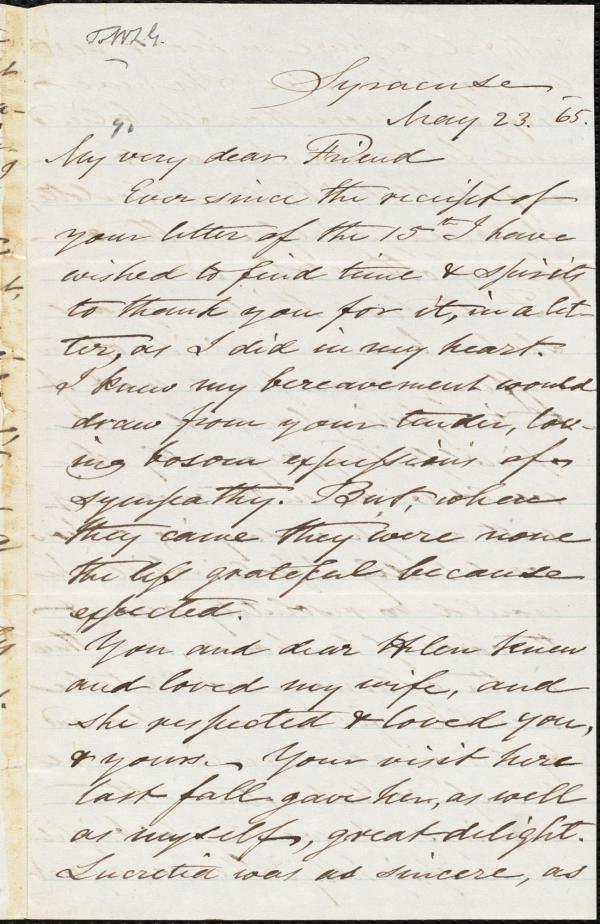 Syracuse
May 23. '65.
My very dear Friend
Ever since the receipt of
your letter of the 15th I have
wished to find time & spirits
to thank you for it, in a let-
ter, as I did in my heart.
I knew my bereavement would
draw from your tender, lov-
ing bosom expressions of
sympathy. But, when
they came they were none
the less grateful because
expected.
You and dear Helen knew
and loved my wife, and
she respected & loved you,
& yours. Your visit here
last fall gave her, as well
as myself, great delight.
Lucretia was as sincere, as